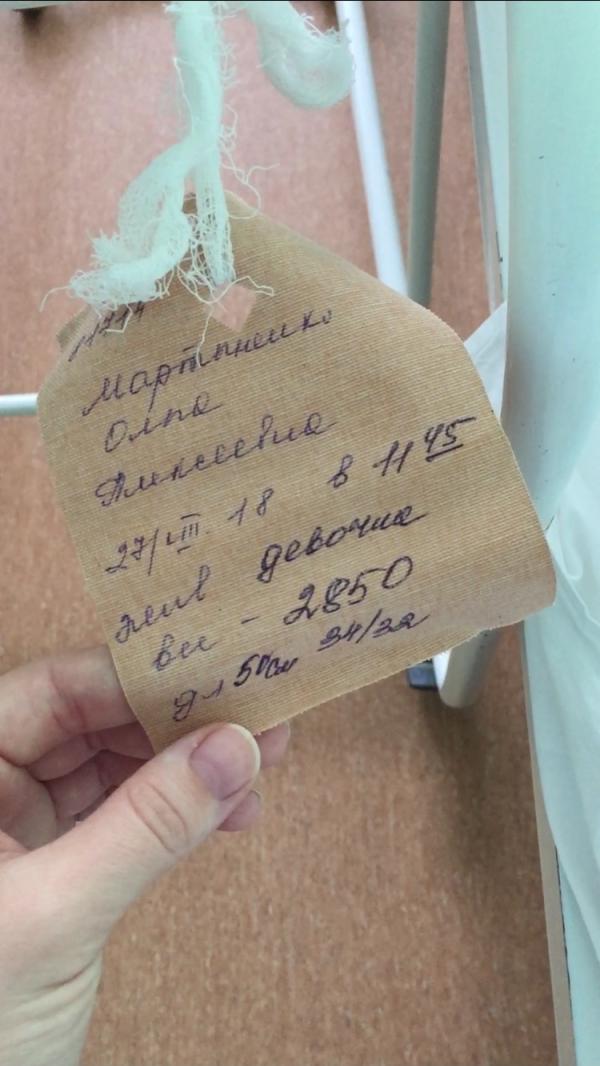 Мартыненко
Олга
Алексеевна
27/VIII. 18 в 11 45
жив девочка
вес - 2850
дл 50 см 34/32